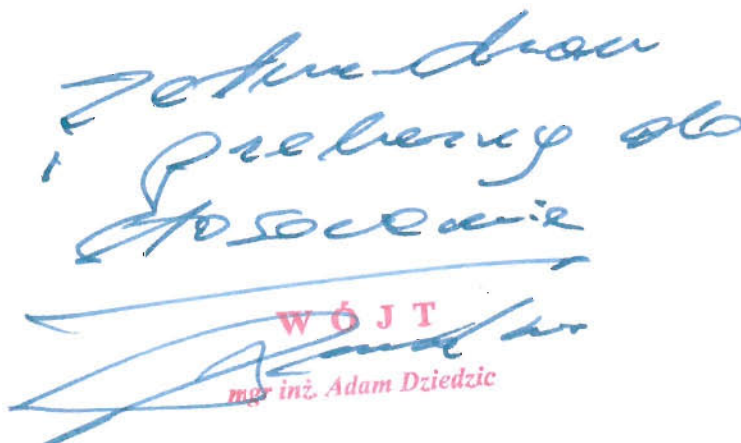 Zatwierdzam
i przekazuję do
stosowania
WÓJT
mgr inż. Adam Dziedzic